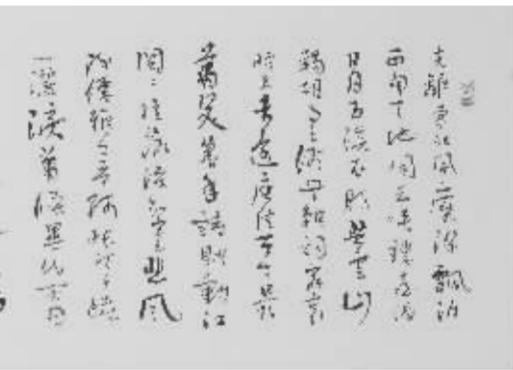 支離東北風塵際飄泊
西南天地間三峽樓臺淹
日月五溪衣服共雲山
羯胡事主終無賴詞客哀
時且未還庾信平生最
蕭瑟暮年詩賦動江
關搖落深知宋玉悲風
流儒雅亦吾師悵望千秋
一灑淚蕭條異代不同